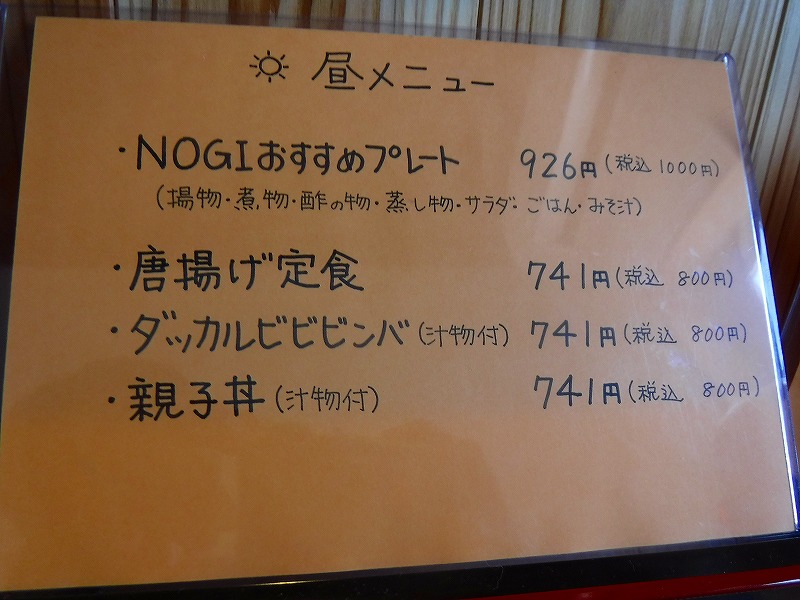 昼メニュー
・NOGIおすすめプレート 926円(税込 1000円)
(揚物・煮物・酢の物・蒸し物・サラダ・ごはん・みそ汁)
・唐揚げ定食 741円(税込 800円)
・ダッカルビビビンバ(汁物付) 741円(税込 800円)
・親子丼(汁物付) 741円(税込 800円)